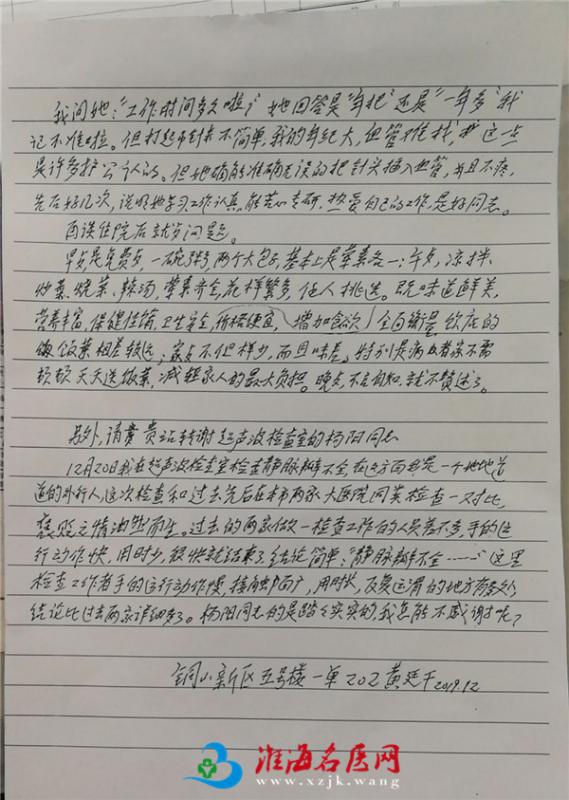 我问她:“工作时间多久啦?”她回答是“年把”还是“一年多”我
记不准啦。但打起针来不简单,我的年纪大,血管难找,这一点
是许多护公认的。但她确能准确无误的把针头插入血管,并且不疼,
先后好几次,说明她学习工作认真,能苦心专研,热爱自己的工作,是好同志。
再谈住院后就歺问题。
早歺是免费歺,一碗粥,两个大包子,基本上是荤素各一;午歺,凉拌、
炒菜、烧菜、辣汤,荤素齐全,花样繁多,任人挑选。既味道鲜美,
营养丰富,保健佳销,卫生安全,价格便宜,增加食欲
饭菜相差较远;家歺不但样少,而且味差。特别是病患者家不需
顿顿天天送饭菜,减轻家人的最大负担。晚歺,不言自知,就不赘述了。
另外,请贵 贵院转谢超声波检查室的杨阳同志
12月20日我在超声波检查室检查静脉瓣不全,在这方面我是一个地地道
道的外行人,这次检查和过去先后在市两家大医院同类检查一对比,
褒贬之情油然而生。过去的两家做一检查工作的人员差不多,手的运
行动作快,用时少,很快就结束了,结论简单:“静脉瓣不全……”这里
检查工作者手的运行动作慢,接触面广,用时长,反复运滑的地方有多处,
结论比过去两家详细多了。杨阳同志的是踏踏实实的,我怎能不感谢呢?
铜山新区五号楼一单202 黄廷干 2019.12
淮海名医网
www.xzjk.wang